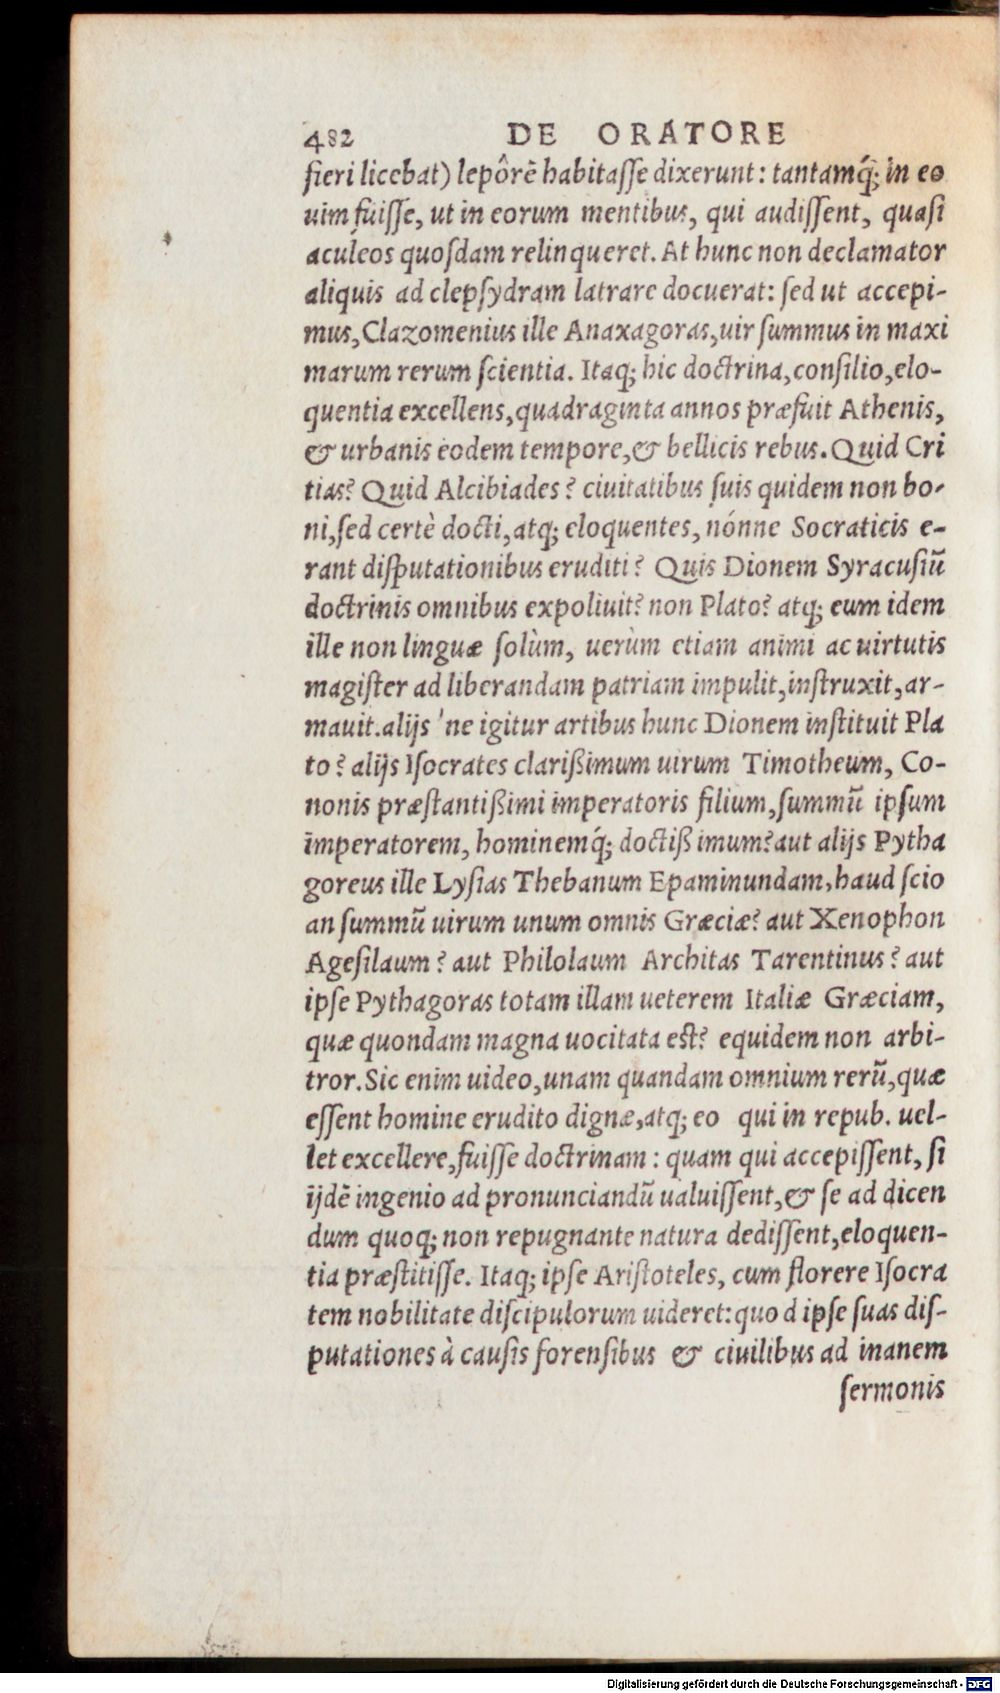 482 DE ORATORE
fieri licebat) lepôrē habitaſſe dixerunt: tantamq́; in eo
uim fuiſſe, ut in eorum mentibus, qui audiſſent, quaſi
aculeos quoſdam relinqueret. At hunc non declamator
aliquis ad clepſydram latrare docuerat: ſed ut accepi-
mus, Clazomenius ille Anaxagoras, uir ſummus in maxi
marum rerum ſcientia. Itaq; hic doctrina, conſilio, elo-
quentia excellens, quadraginta annos præfuit Athenis,
& urbanis eodem tempore, & bellicis rebus. Quid Cri
tias? Quid Alcibiades? ciuitatibus ſuis quidem non bo-
ni, ſed certè docti, atq; eloquentes, nónne Socraticis e-
rant diſputationibus eruditi? Quis Dionem Syracuſiū
doctrinis omnibus expoliuit? non Plato? atq; eum idem
ille non linguæ ſolùm, uerùm etiam animi ac uirtutis
magiſter ad liberandam patriam impulit, inſtruxit, ar-
mauit. alijs 'ne igitur artibus hunc Dionem inſtituit Pla
to? alijs Iſocrates clarißimum uirum Timotheum, Co-
nonis præſtantißimi imperatoris filium, ſummū ipſum
imperatorem, hominemq́; doctiß imum? aut alijs Pytha
goreus ille Lyſias Thebanum Epaminundam, haud ſcio
an ſummū uirum unum omnis Græciæ? aut Xenophon
Ageſilaum? aut Philolaum Architas Tarentinus? aut
ipſe Pythagoras totam illam ueterem Italiæ Græciam,
quæ quondam magna uocitata eſt? equidem non arbi-
tror. Sic enim uideo, unam quandam omnium rerū, quæ
eſſent homine erudito dignæ, atq; eo qui in repub. uel-
let excellere, fuiſſe doctrinam: quam qui accepiſſent, ſi
ijdē ingenio ad pronunciandū ualuiſſent, & ſe ad dicen
dum quoq; non repugnante natura dediſſent, eloquen-
tia præſtitiſſe. Itaq; ipſe Ariſtoteles, cum florere Iſocra
tem nobilitate diſcipulorum uideret: quo d ipſe ſuas diſ-
putationes à cauſis forenſibus & ciuilibus ad inanem
ſermonis
Digitalisierung gefördert durch die Deutsche Forschungsgemeinschaft - DFG